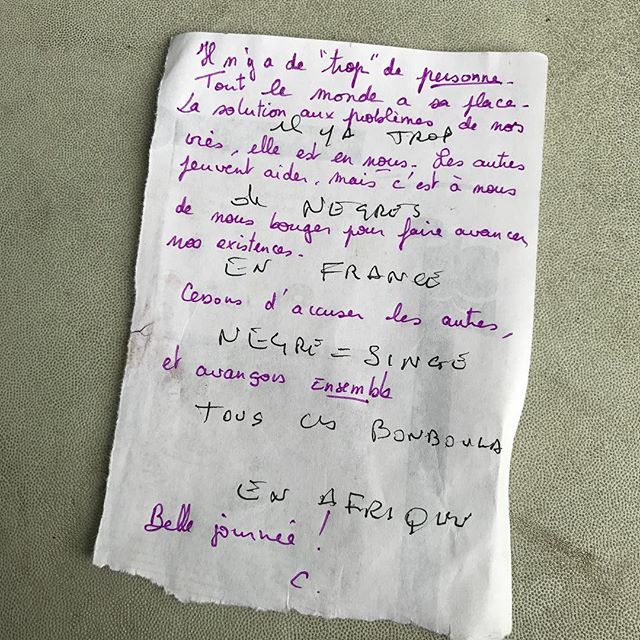 Il n'y a de "trop" de personne.
Tout le monde a sa place.
La solution aux problèmes de nos
il y A TROP
vies, elle est en nous. Les autres
peuvent aider, mais c'est à nous
de NEGRES
de nous bouger pour faire avancer
nos existences.
EN FRANCE
Cessons d'accuser les autres,
NEGRE = SINGE
et avançons Ensemble
TOUS CES BONBOULA
EN AFRIQUE
Belle journée !
C.